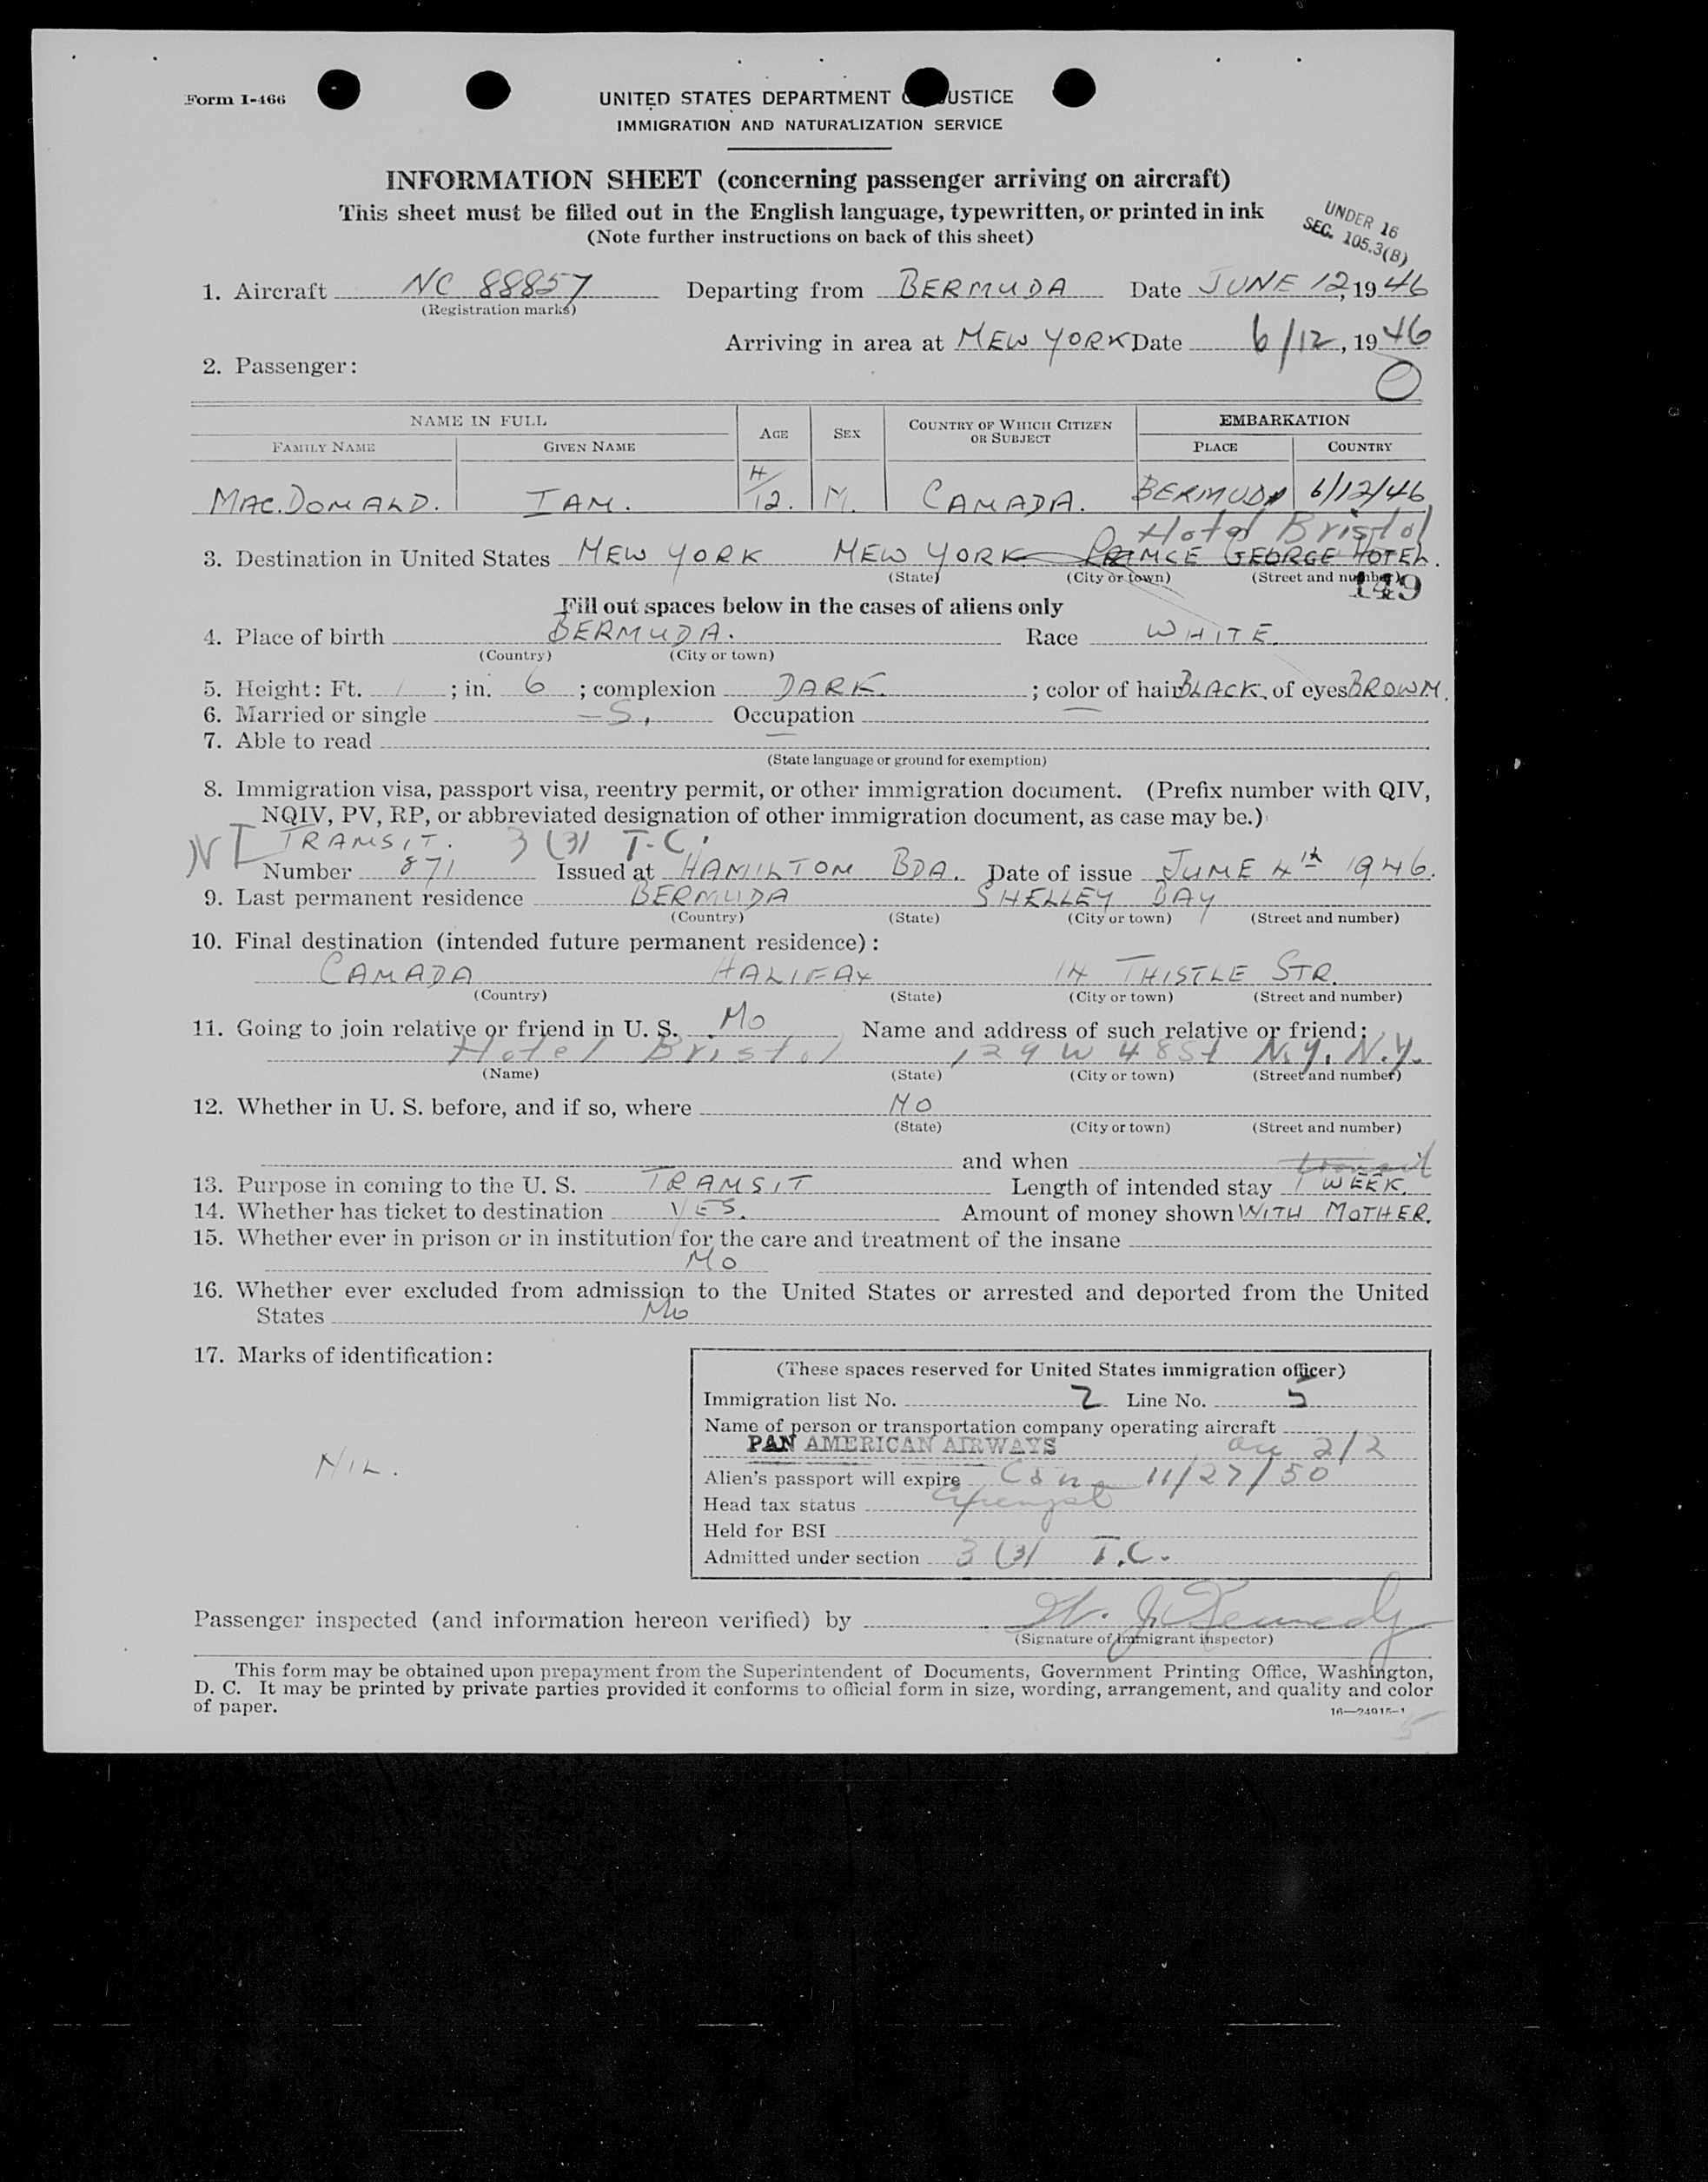 Form I-466
UNITED STATES DEPARTMENT OF JUSTICE
IMMIGRATION AND NATURALIZATION SERVICE
INFORMATION SHEET (concerning passenger arriving on aircraft)
This sheet must be filled out in the English language, typewritten, or printed in ink
(Note further instructions on back of this sheet)
UNDER 16
SEC. 105.3(B)
1. Aircraft NC 88857 Departing from BERMUDA Date JUNE 12, 1946
(Registration marks)
Arriving in area at NEW YORK Date 6/12, 1946
2. Passenger:
NAME IN FULL AGE SEX COUNTRY OF WHICH CITIZEN OR SUBJECT EMBARKATION
FAMILY NAME GIVEN NAME PLACE COUNTRY
MAC.DONALD. IAN. 4/12. M. CANADA. BERMUDA 6/12/46
Hotel Bristol
3. Destination in United States NEW YORK NEW YORK PRINCE GEORGE HOTEL.
(State) (City or town) (Street and number)
149
Fill out spaces below in the cases of aliens only
4. Place of birth BERMUDA. Race WHITE.
(Country) (City or town)
5. Height: Ft. 1; in. 6; complexion DARK.; color of hair BLACK, of eyes BROWN.
6. Married or single S. Occupation
7. Able to read
(State language or ground for exemption)
8. Immigration visa, passport visa, reentry permit, or other immigration document. (Prefix number with QIV,
NQIV, PV, RP, or abbreviated designation of other immigration document, as case may be.)
TRANSIT. 3 (3) T.C.
Number 871 Issued at HAMILTON BDA. Date of issue JUNE 4th 1946.
9. Last permanent residence BERMUDA SHELLEY BAY
(Country) (State) (City or town) (Street and number)
10. Final destination (intended future permanent residence):
CANADA HALIFAX 14 THISTLE STR.
(Country) (State) (City or town) (Street and number)
11. Going to join relative or friend in U. S. NO Name and address of such relative or friend:
Hotel Bristol 129 W 48 St N.Y. N.Y.
(Name) (State) (City or town) (Street and number)
12. Whether in U. S. before, and if so, where NO
(State) (City or town) (Street and number)
and when
transit
13. Purpose in coming to the U. S. TRANSIT Length of intended stay 1 WEEK.
14. Whether has ticket to destination YES. Amount of money shown WITH MOTHER.
15. Whether ever in prison or in institution for the care and treatment of the insane
NO
16. Whether ever excluded from admission to the United States or arrested and deported from the United
States NO
17. Marks of identification:
NIL.
(These spaces reserved for United States immigration officer)
Immigration list No. 2 Line No. 5
Name of person or transportation company operating aircraft
PAN AMERICAN AIRWAYS 2/2
Alien's passport will expire Can 11/27/50
Head tax status Exempt
Held for BSI
Admitted under section 3 (3) T.C.
Passenger inspected (and information hereon verified) by W. J. Kennedy
(Signature of immigrant inspector)
This form may be obtained upon prepayment from the Superintendent of Documents, Government Printing Office, Washington,
D. C. It may be printed by private parties provided it conforms to official form in size, wording, arrangement, and quality and color
of paper.
16—24915-1
5